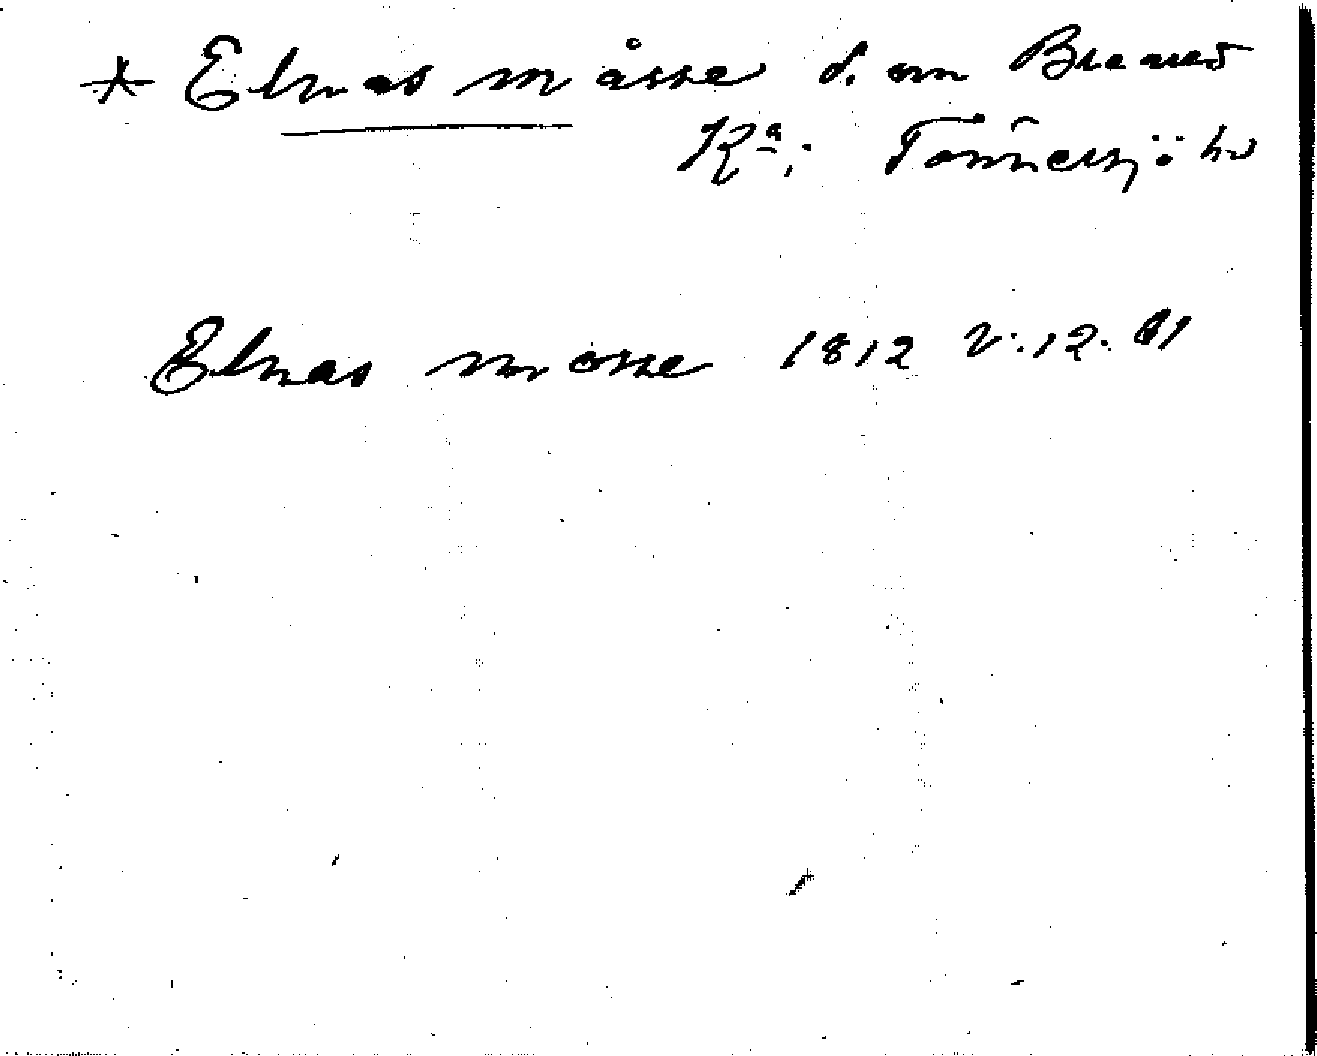 * Elnas måsse d. om Breared
Ka; Tönnersjö hd
Elnas mosse 1812 V:12:61